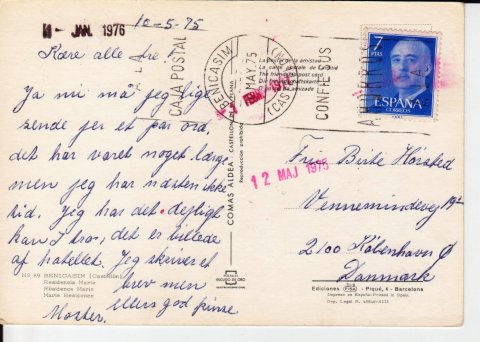 JAN. 1976
10-5-75
Kære alle tre!
Ja nu må jeg lige
sende jer et par ord,
det har varet noget længe
men jeg har næsten ikke
tid. Jeg har det dejligt
kan I tro, det er billede
af hotellet. Jeg skriver et
brev men
ellers god pinse
Moster.
Nº 69 BENICASIM (Castellón)
Residencia Marie
Résidence Marie
Marie Residence
COMAS ALDEA - CASTELLON
Reproducción prohibida
CAJA POSTAL
BENICASIM
MAY 75
(CAS
CONFIE US
AHORROS
La postal de la amistad
The friendship post card
7
PTAS
ESPAÑA
CORREOS
12 MAJ 1975
Fru Birte Høisted
Vennemindevej
2100 København Ø
Danmark
POSTALES
ESCUDO DE ORO
Ediciones FISA - Piqué, 4 - Barcelona
Impreso en España-Printed in Spain
Dep. Legal B.